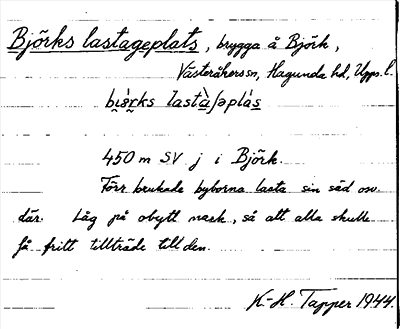 Björks lastageplats, brygga å Björk,
Västeråkers sn, Hagunda hd, Upps. l.
450 m SV j i Björk.
Förr brukade byborna lasta sin säd osv.
där. Låg på obytt mark, så att alla skulle
få fritt tillträde till den.
K.-H. Tapper 1944.